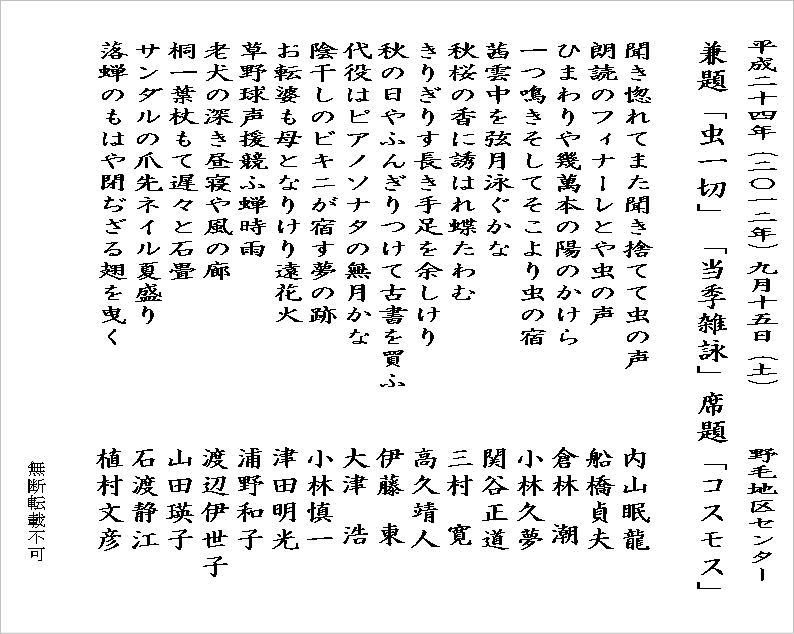 平成二十四年（二〇一二年）九月十五日（土）　野毛地区センター
兼題「虫一切」「当季雑詠」席題「コスモス」
聞き惚れてまた聞き捨てて虫の声　内山眠龍
朗読のフィナーレとや虫の声　船橋貞夫
ひまわりや幾萬本の陽のかけら　倉林　潮
一つ鳴きそしてそこより虫の宿　小林久夢
茜雲中を弦月泳ぐかな　関谷正道
秋桜の香に誘はれ蝶たわむ　三村　寛
きりぎりす長き手足を余しけり　高久靖人
秋の日やふんぎりつけて古書を買ふ　伊藤　東
代役はピアノソナタの無月かな　大津　浩
陰干しのビキニが宿す夢の跡　小林慎一
お転婆も母となりけり遠花火　津田明光
草野球声援競ふ蝉時雨　浦野和子
老犬の深き昼寝や風の廊　渡辺伊世子
桐一葉杖もて遅々と石畳　山田瑛子
サンダルの爪先ネイル夏盛り　石渡静江
落蝉のもはや閉ぢざる翅を曳く　植村文彦
無断転載不可